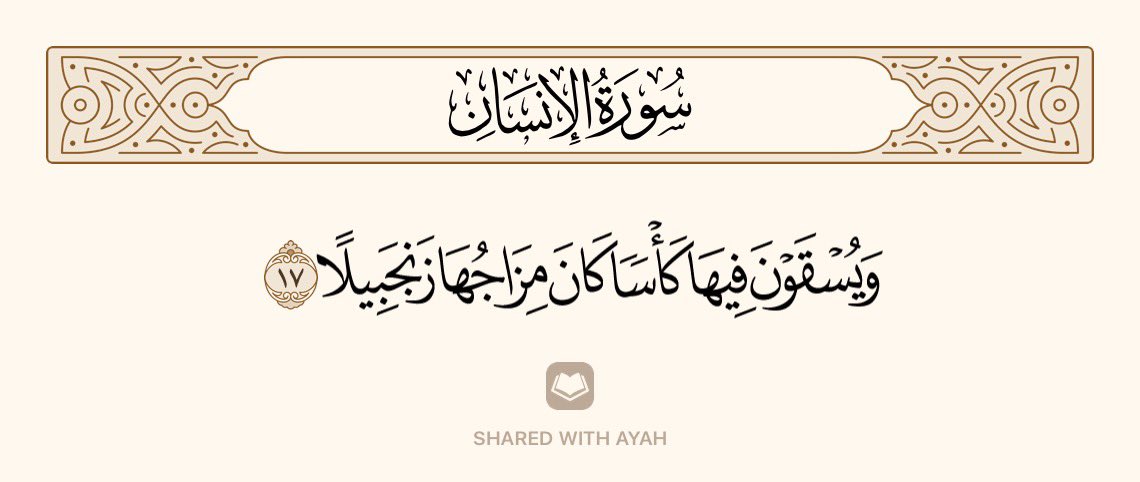 سُورَةُ الإِنسَانِ
وَيُسۡقَوۡنَ فِيهَا كَأۡسٗا كَانَ مِزَاجُهَا زَنجَبِيلًا ١٧
SHARED WITH AYAH